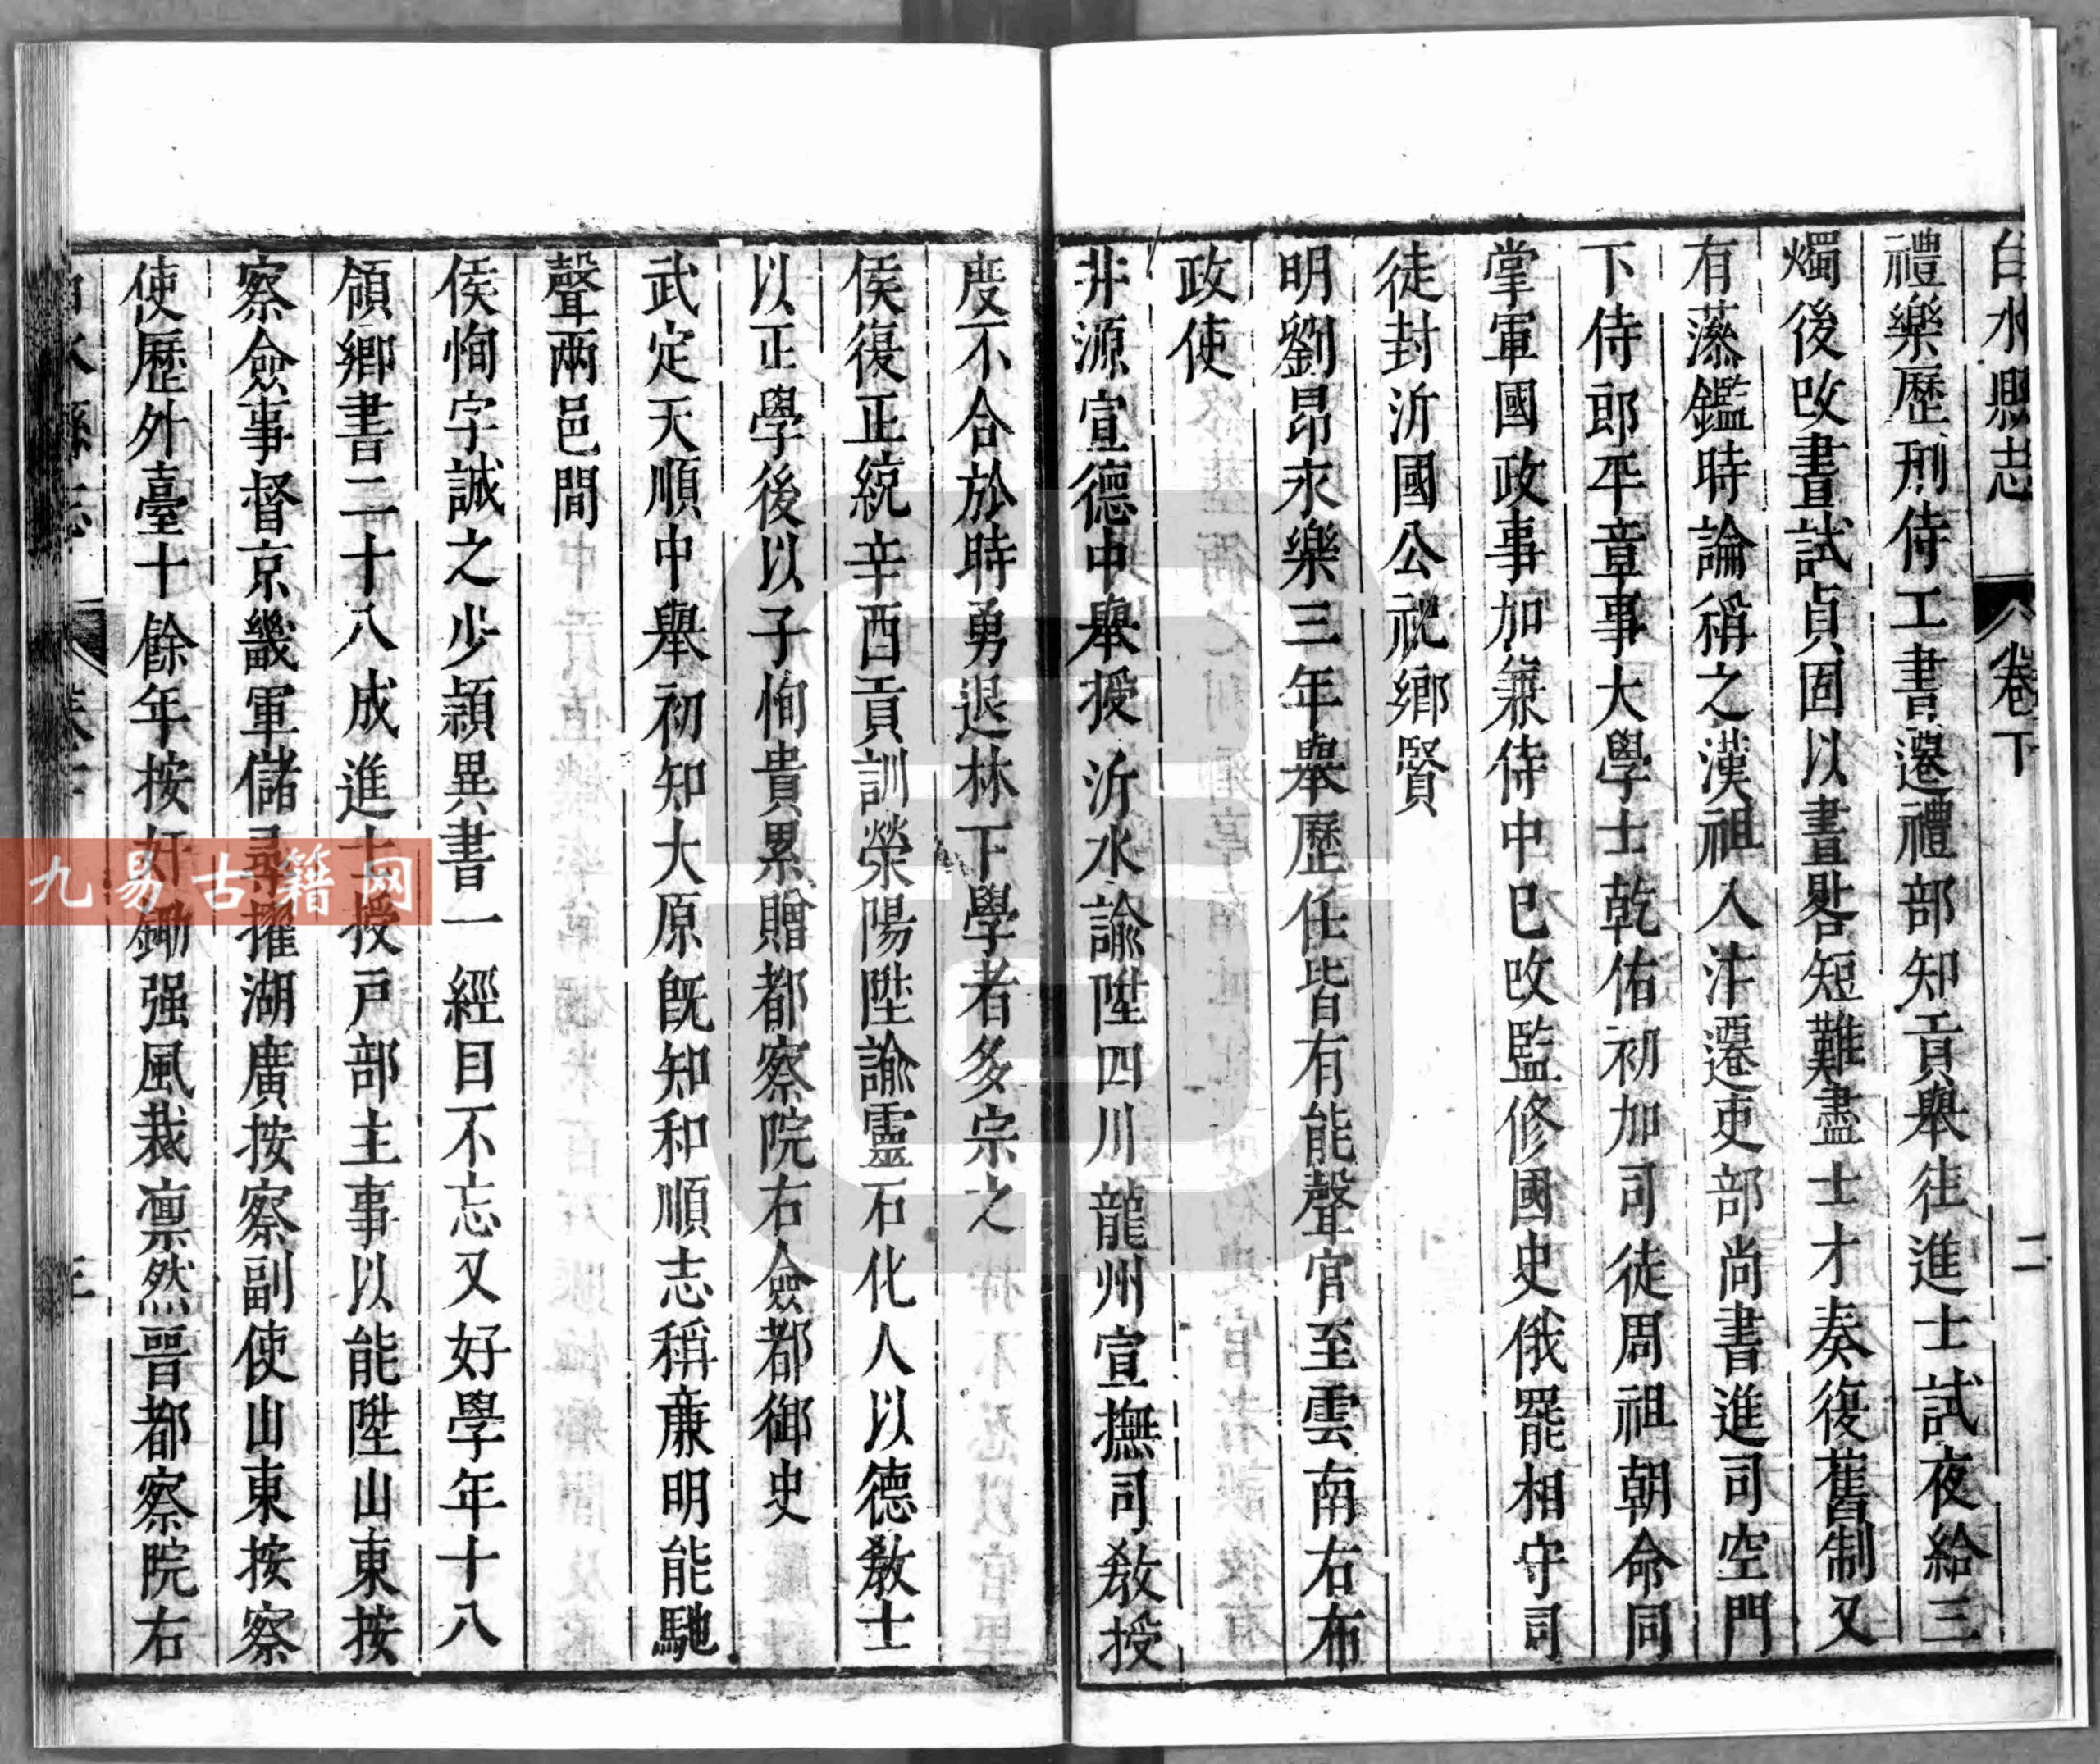 白水縣志 卷下 二
禮樂歷刑侍工書遷禮部知貢舉徃進士試夜給三
燭後改晝試貞固以晝晷短難盡士才奏復舊制又
有藻鑑時論稱之漢祖入汴遷吏部尚書進司空門
下侍郎平章事大學士乾佑初加司徒周祖朝命同
掌軍國政事加兼侍中已改監修國史俄罷相守司
徒封沂國公祀鄉賢
明劉昂永樂三年舉歷任皆有能聲官至雲南右布
政使
井源宣德中舉授沂水諭陞四川龍州宣撫司教授
度不合於時勇退林下學者多宗之
侯復正統辛酉貢訓榮陽陞諭靈石化人以德教士
以正學後以子恂貴累贈都察院右僉都御史
武定天順中舉初知大原旣知和順志稱亷明能馳
聲兩邑間
侯恂字誠之少穎異書一經目不忘又好學年十八
領鄉書二十八成進士授戸部主事以能陞山東按
察僉事督京畿軍儲尋擢湖廣按察副使山東按察
使歷外臺十餘年按奸鋤强風裁凛然晉都察院右
白水縣志 卷下 三
九易古籍网